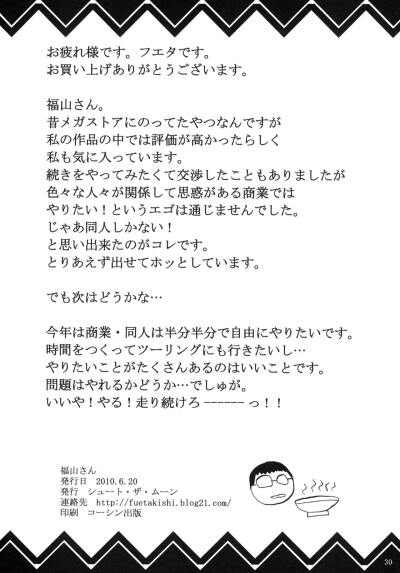 お疲れ様です。フエタです。
お買い上げありがとうございます。
福山さん。
昔メガストアにのってたやつなんですが
私の作品の中では評価が高かったらしく
私も気に入っています。
続きをやってみたくて交渉したこともありましたが
色々な人々が関係して思惑がある商業では
やりたい！というエゴは通じませんでした。
じゃあ同人しかない！
と思い出来たのがコレです。
とりあえず出せてホッとしています。
でも次はどうかな…
今年は商業・同人は半分半分で自由にやりたいです。
時間をつくってツーリングにも行きたいし…
やりたいことがたくさんあるのはいいことです。
問題はやれるかどうか…でしゅが。
いいや！やる！走り続けろ――――――っ！！
福山さん
発行日　2010.6.20
発行　シュート・ザ・ムーン
連絡先　http://fuetakishi.blog21.com/
印刷　コーシン出版
30